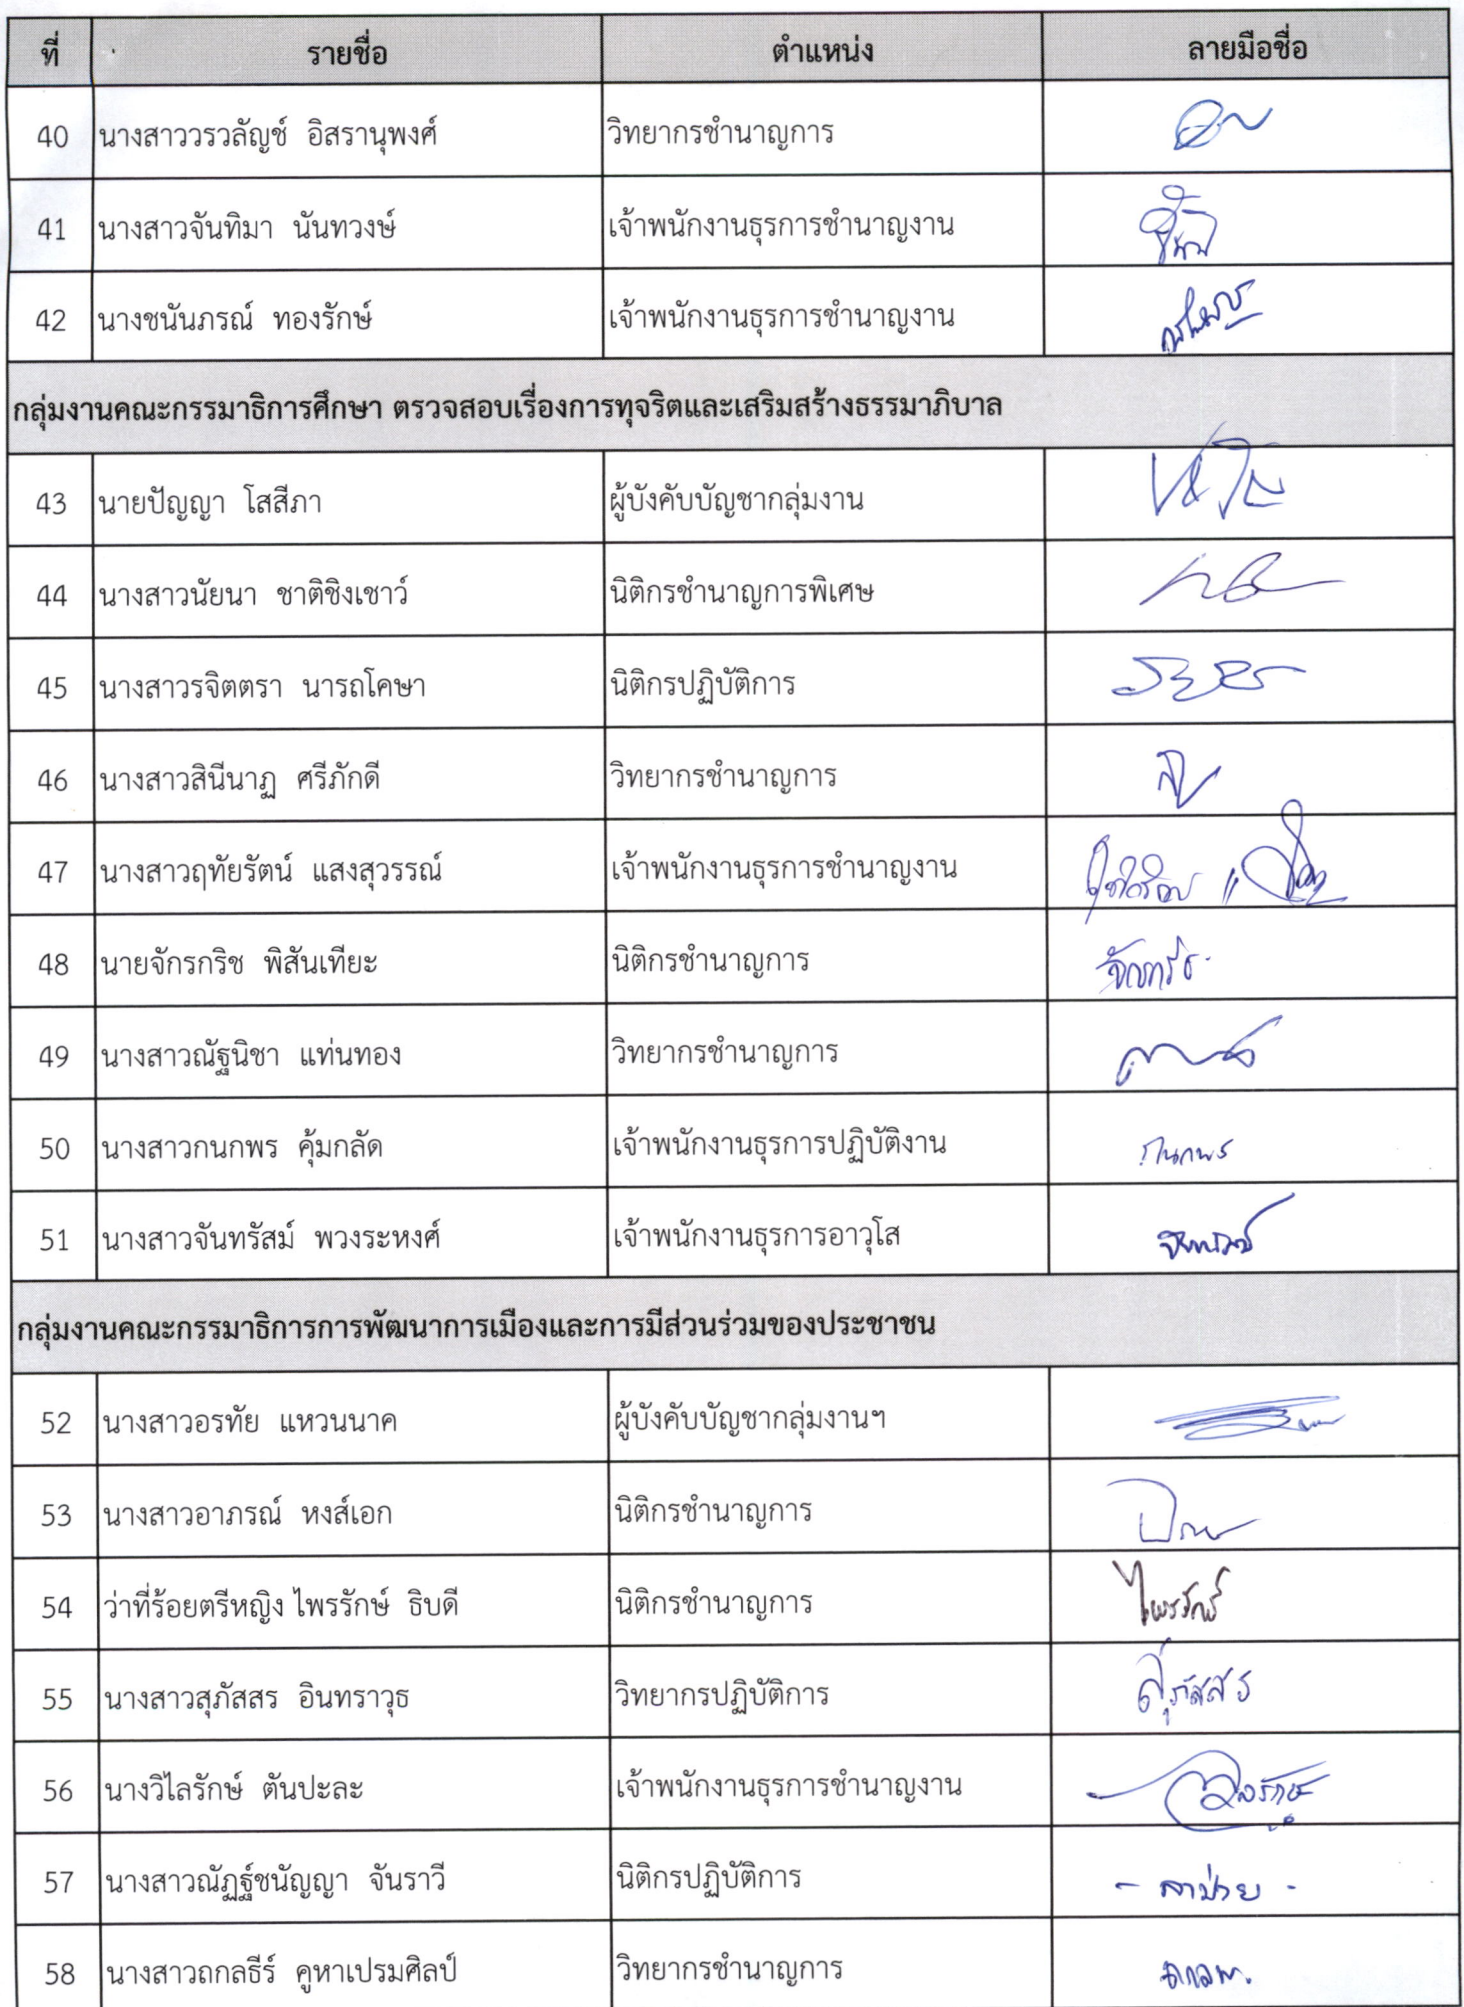 ที่ รายชื่อ ตำแหน่ง ลายมือชื่อ
40 นางสาววรวลัญช์ อิสรานุพงศ์ วิทยากรชำนาญการ
41 นางสาวจันทิมา นันทวงษ์ เจ้าพนักงานธุรการชำนาญงาน
42 นางชนันภรณ์ ทองรักษ์ เจ้าพนักงานธุรการชำนาญงาน
กลุ่มงานคณะกรรมาธิการศึกษา ตรวจสอบเรื่องการทุจริตและเสริมสร้างธรรมาภิบาล
43 นายปัญญา โสสีภา ผู้บังคับบัญชากลุ่มงาน
44 นางสาวนัยนา ชาติชิงเชาว์ นิติกรชำนาญการพิเศษ
45 นางสาวรจิตตรา นารถโคษา นิติกรปฏิบัติการ
46 นางสาวสินีนาฏ ศรีภักดี วิทยากรชำนาญการ
47 นางสาวฤทัยรัตน์ แสงสุวรรณ์ เจ้าพนักงานธุรการชำนาญงาน
48 นายจักรกริช พิสันเทียะ นิติกรชำนาญการ
49 นางสาวณัฐนิชา แท่นทอง วิทยากรชำนาญการ
50 นางสาวกนกพร คุ้มกลัด เจ้าพนักงานธุรการปฏิบัติงาน กนกพร
51 นางสาวจันทรัสม์ พวงระหงศ์ เจ้าพนักงานธุรการอาวุโส
กลุ่มงานคณะกรรมาธิการการพัฒนาการเมืองและการมีส่วนร่วมของประชาชน
52 นางสาวอรทัย แหวนนาค ผู้บังคับบัญชากลุ่มงานฯ
53 นางสาวอาภรณ์ หงส์เอก นิติกรชำนาญการ
54 ว่าที่ร้อยตรีหญิง ไพรรักษ์ ธิบดี นิติกรชำนาญการ ไพรรักษ์
55 นางสาวสุภัสสร อินทราวุธ วิทยากรปฏิบัติการ สุภัสสร
56 นางวิไลรักษ์ ตันปะละ เจ้าพนักงานธุรการชำนาญงาน
57 นางสาวณัฏฐ์ชนัญญา จันราวี นิติกรปฏิบัติการ - ลาป่วย -
58 นางสาวถกลธีร์ คูหาเปรมศิลป์ วิทยากรชำนาญการ